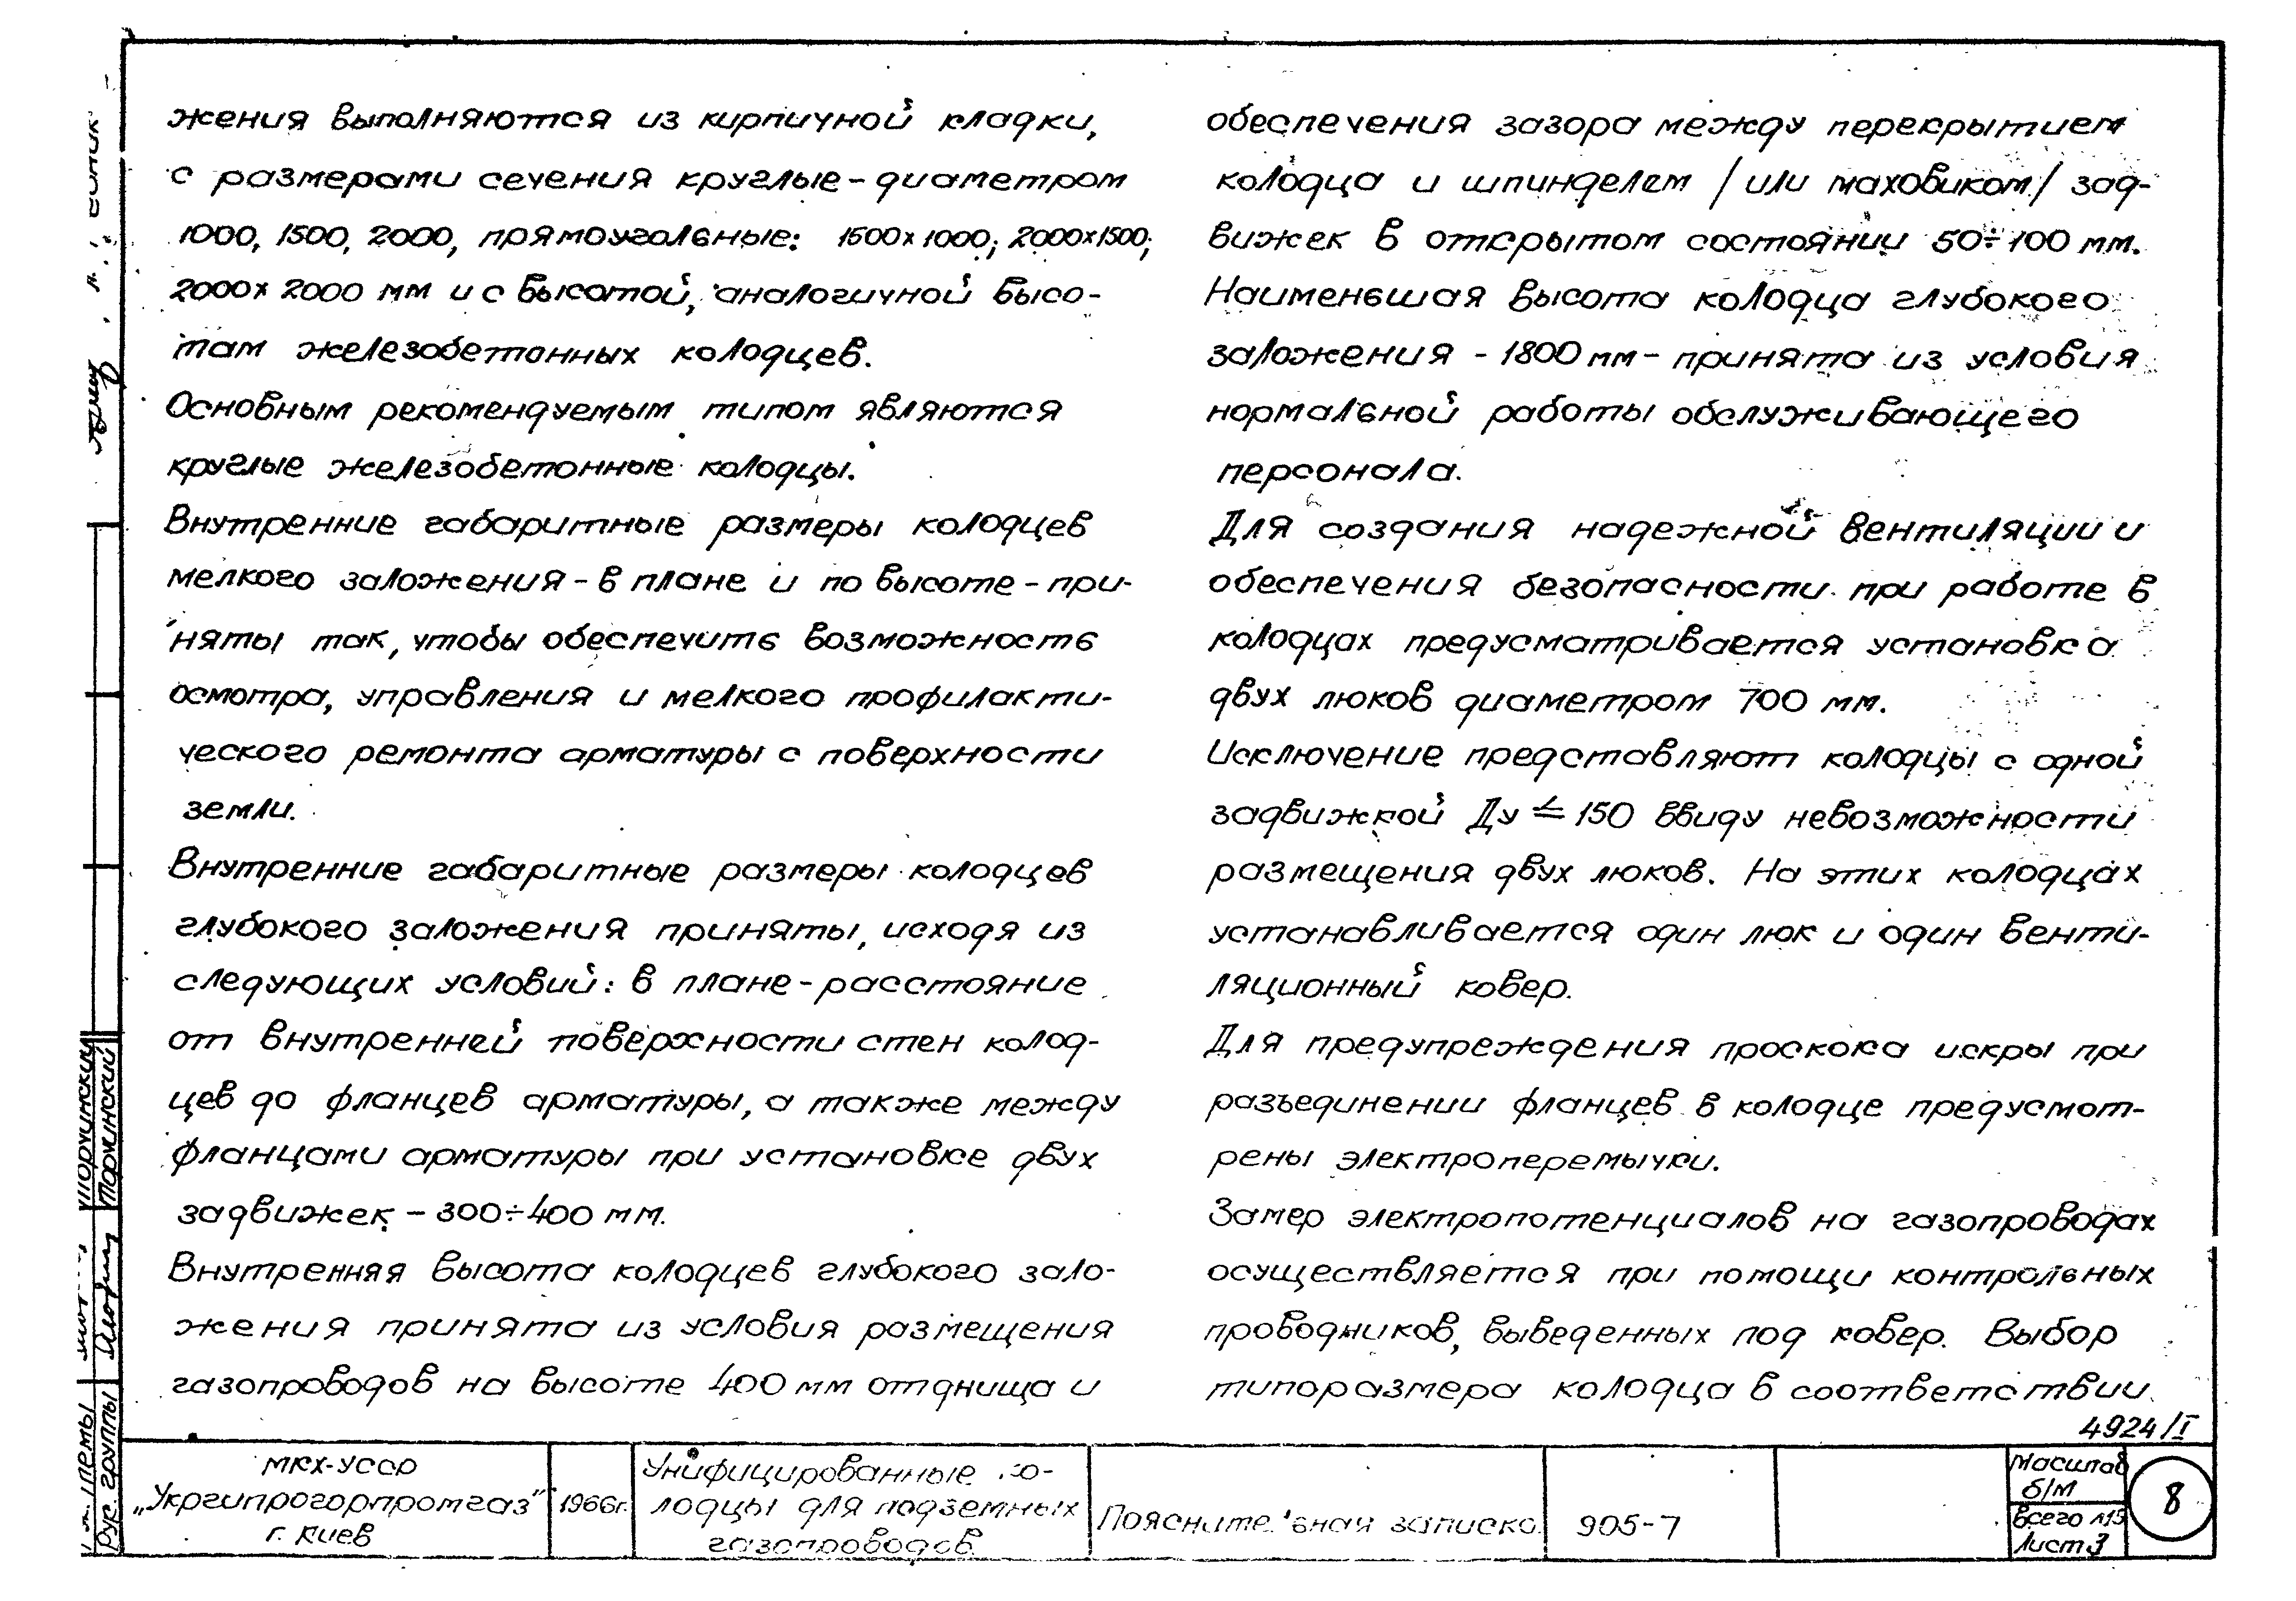 жения выполняются из кирпичной кладки,
с размерами сечения круглые – диаметром
1000, 1500, 2000, прямоугольные: 1500х1000; 2000х1500;
2000х2000 мм и с высотой, аналогичной высо-
там железобетонных колодцев.
Основным рекомендуемым типом являются
круглые железобетонные колодцы.
Внутренние габаритные размеры колодцев
мелкого заложения – в плане и по высоте – при-
няты так, чтобы обеспечить возможность
осмотра, управления и мелкого профилакти-
ческого ремонта арматуры с поверхности
земли.
Внутренние габаритные размеры колодцев
глубокого заложения приняты, исходя из
следующих условий: в плане – расстояние
от внутренней поверхности стен колод-
цев до фланцев арматуры, а также между
фланцами арматуры при установке двух
задвижек – 300÷400 мм.
Внутренняя высота колодцев глубокого зало-
жения принята из условия размещения
газопроводов на высоте 400 мм от днища и
обеспечения зазора между перекрытием
колодца и шпинделем /или маховиком/ зад-
вижек в открытом состоянии 50÷100 мм.
Наименьшая высота колодца глубокого
заложения – 1800 мм – принята из условия
нормальной работы обслуживающего
персонала.
Для создания надежной вентиляции и
обеспечения безопасности при работе в
колодцах предусматривается установка
двух люков диаметром 700 мм.
Исключение представляют колодцы с одной
задвижкой Ду ≤ 150 ввиду невозможности
размещения двух люков. На этих колодцах
устанавливается один люк и один венти-
ляционный ковер.
Для предупреждения проскока искры при
разъединении фланцев в колодце предусмот-
рены электроперемычки.
Замер электропотенциалов на газопроводах
осуществляется при помощи контрольных
проводников, выведенных под ковер. Выбор
типоразмера колодца в соответствии
4924/I
МКХ-УССР
„Укргипрогорпромгаз"
г. Киев
1966г.
Унифицированные ко-
лодцы для подземных
газопроводов
Пояснительная записка
905-7
Масштаб
б/м
Всего л15
Лист 3
8
Рук. группы
Порчинский